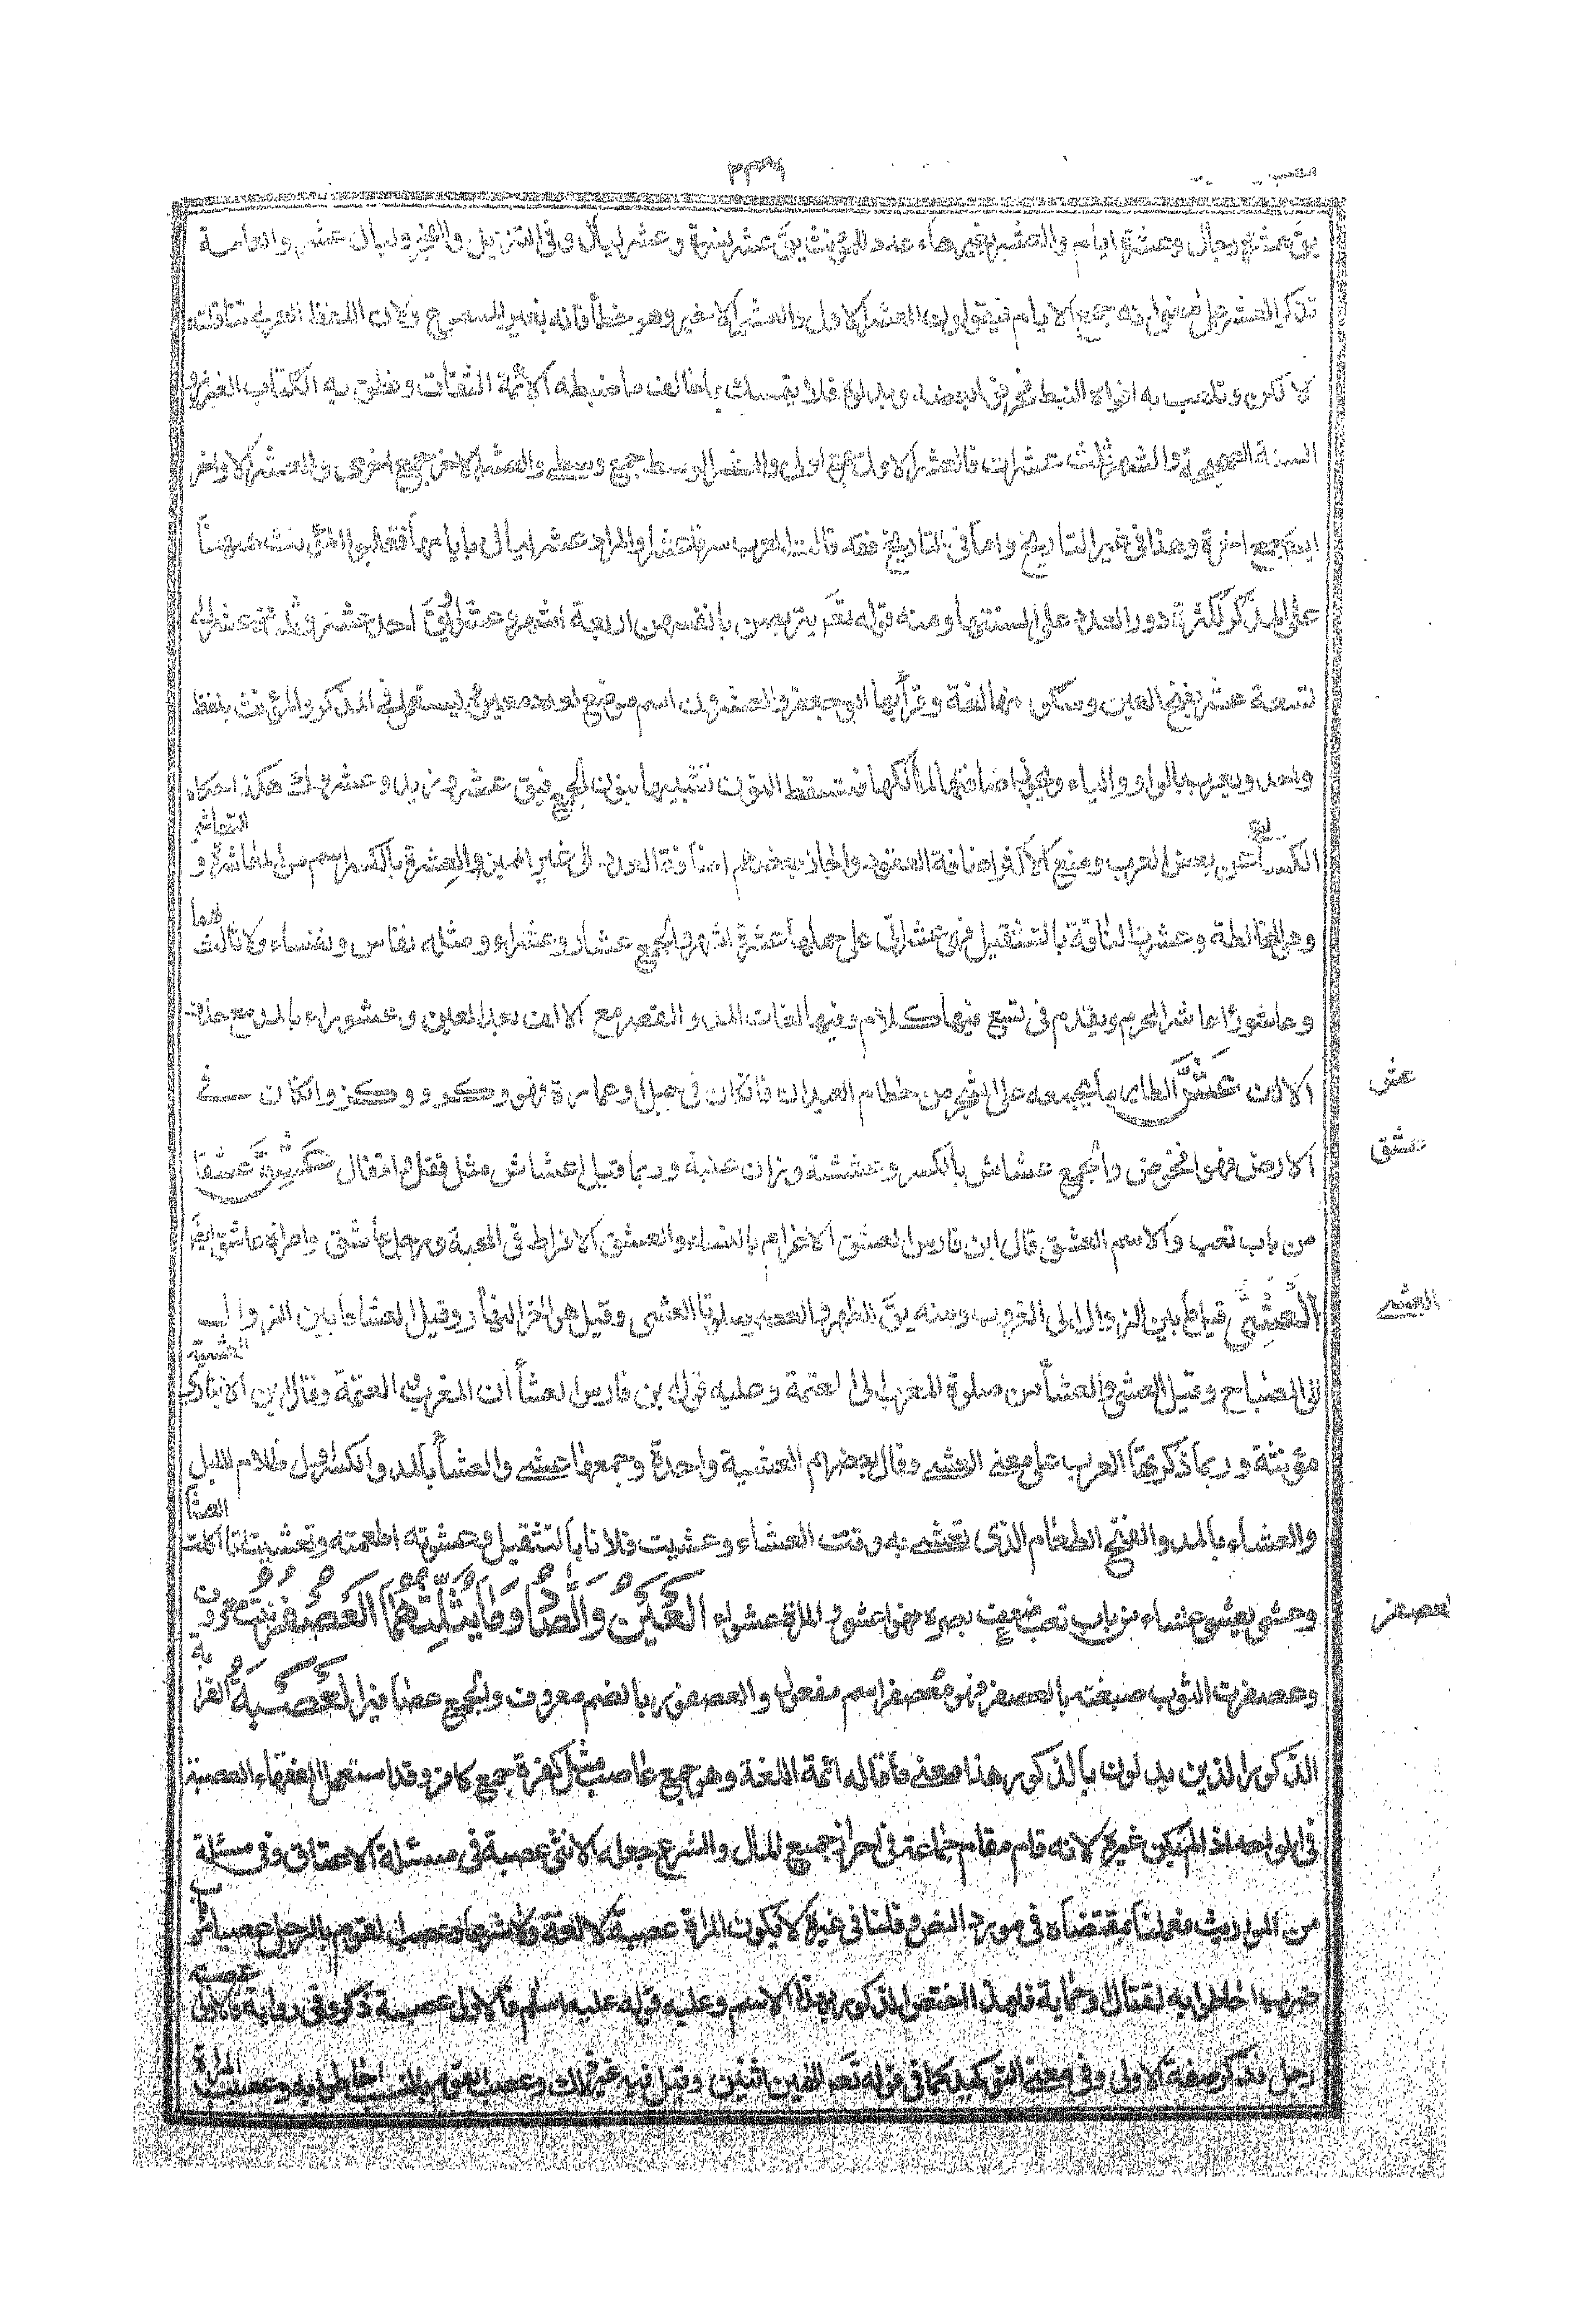 يق عشرة رجال وعشرة ايام والعشر بغير هاء عدد للمؤنث يق عشر نسوة وعشر ليال وفى التنزيل والفجر وليال عشر والعامة
تذكر العشر على معنى انه جمع الايام فيقولون العشر الاول والعشر الاخير وهو خطأ فانه تغيير المسموع ولان اللفظ العربى تناقلته
الالكن وتلعب به افواه النبط فحرفوا بعضه وبدلوه فلا يتمسك بما خالف ما ضبطه الائمة الثقات ونطق به الكتاب العزيز و
السنة الصحيحة والشهر ثلث عشرات فالعشر الاول جمع اولى والعشر الوسط جمع وسطى والعشر الاخر جمع اخرى والعشر الاواخر
ايضا جمع اخرة وهذا فى غير التاريخ واما فى التاريخ فقد قالت العرب سرنا عشرا والمراد عشر ليالى بايامها فغلبوا المؤنث ههنا
على المذكر لكثرة دور العدد على السنتها ومنه قوله تعم يتربصن بانفسهن اربعة اشهر وعشرا ويق احد عشر وثلثة عشر الى
تسعة عشر بفتح العين وسكونها لغة وقرأ بها ابو جعفر والعشرون اسم موضوع لعدد معين ويستعمل فى المذكر والمؤنث بلفظ
واحد ويعرب بالواو والياء ويجوز اضافتها لمالكها فتسقط النون تشبيها بنون الجمع فيق عشرو زيد وعشروك هكذا حكاه
الكسائى عن بعض العرب ومنع الاكثر اضافة العقود واجاز بعضهم اضافة العدد الى غير التمييز والعشرة بالكسر اسم من المعاشرة و التعاشر
وهى المخالطة وعشرت الناقة بالتثقيل فهى عشراء اتى على حملها عشرة اشهر والجمع عشار وعشراء ومثله نفاس ونفساء ولا ثالث لهما
وعاشورا عاشر المحرم وتقدم فى تسع فيها كلام وفيها لغات المد والقصر مع الالف بعد العين وعشوراء بالمد مع حذف
الالف عش الطائر ما يجمعه على الشجر من حطام العيدان فان كان فى جبل او عمارة فهو وكر ووكن وان كان فى
الارض فهو افحوص والجمع عشاش بالكسر وعششة وزان عنبة وربما قيل اعشاش مثل قفل واقفال عشق عشقا
من باب تعب والاسم العشق قال ابن فارس العشق الاغرام بالنساء والعشق الافراط فى المحبة ورجل عاشق وامراة عاشق ايضا
العشى قيل ما بين الزوال الى الغروب ومنه يق الظهر والعصر صلوتا العشى وقيل هو اخر النهار وقيل العشا ما بين الزوال
الى الصباح وقيل العشى والعشا من صلوة المغرب الى العتمة وعليه قول ابن فارس العشا ان المغرب والعتمة وقال ابن الانبارى العشية
مؤنثة وربما ذكرتها العرب على معنى العشى وقال بعضهم العشية واحدة وجمعها عشى والعشا بالمد والكسر اول ظلام الليل
والعشاء بالمد والفتح الطعام الذى يتعشى به وقت العشاء وعشيت فلانا بالتثقيل وعشوته اطعمته وتعشيت انا اكلت العشا
وعشى يعشى عشاء من باب تعب ضعف بصره فهو اعشى والمراة عشواء العين والصاد وما يثلثهما العصفر نبت معروف
وعصفرت الثوب صبغته بالعصفر فهو معصفر اسم مفعول والعصفور بالضم معروف والجمع عصافير العصبة القرابة
الذكور الذين يدلون بالذكور هذا معنى ما قاله ائمة اللغة وهو جمع عاصب مثل كفرة جمع كافر وقد استعمل الفقهاء العصبة
فى الواحد اذا لم يكن غيره لانه قام مقام الجماعة فى احراز جميع المال والشرع جعل الانثى عصبة فى مسئلة الاعتاق وفى مسئلة
من المواريث فعملنا بمقتضاه فى مورد النص وقلنا فى غيره لا يكون المراة عصبة لا لغة ولا شرعا وعصب القوم بالرجل عصبا من باب
ضرب احاطوا به لقتال وحماية فلهذا اختص الذكور بهذا الاسم وعليه قوله عليه السلم فلاولى عصبة ذكر وفى رواية فلاولى عصبة
رجل فذكر صفة لاولى وفى معنى التوكيد كما فى قوله تعم الهين اثنين وقيل فيه غير ذلك وعصب القوم بالنسب احاطوا به وعصبت المراة
عش
عشق
العشى
العصفر